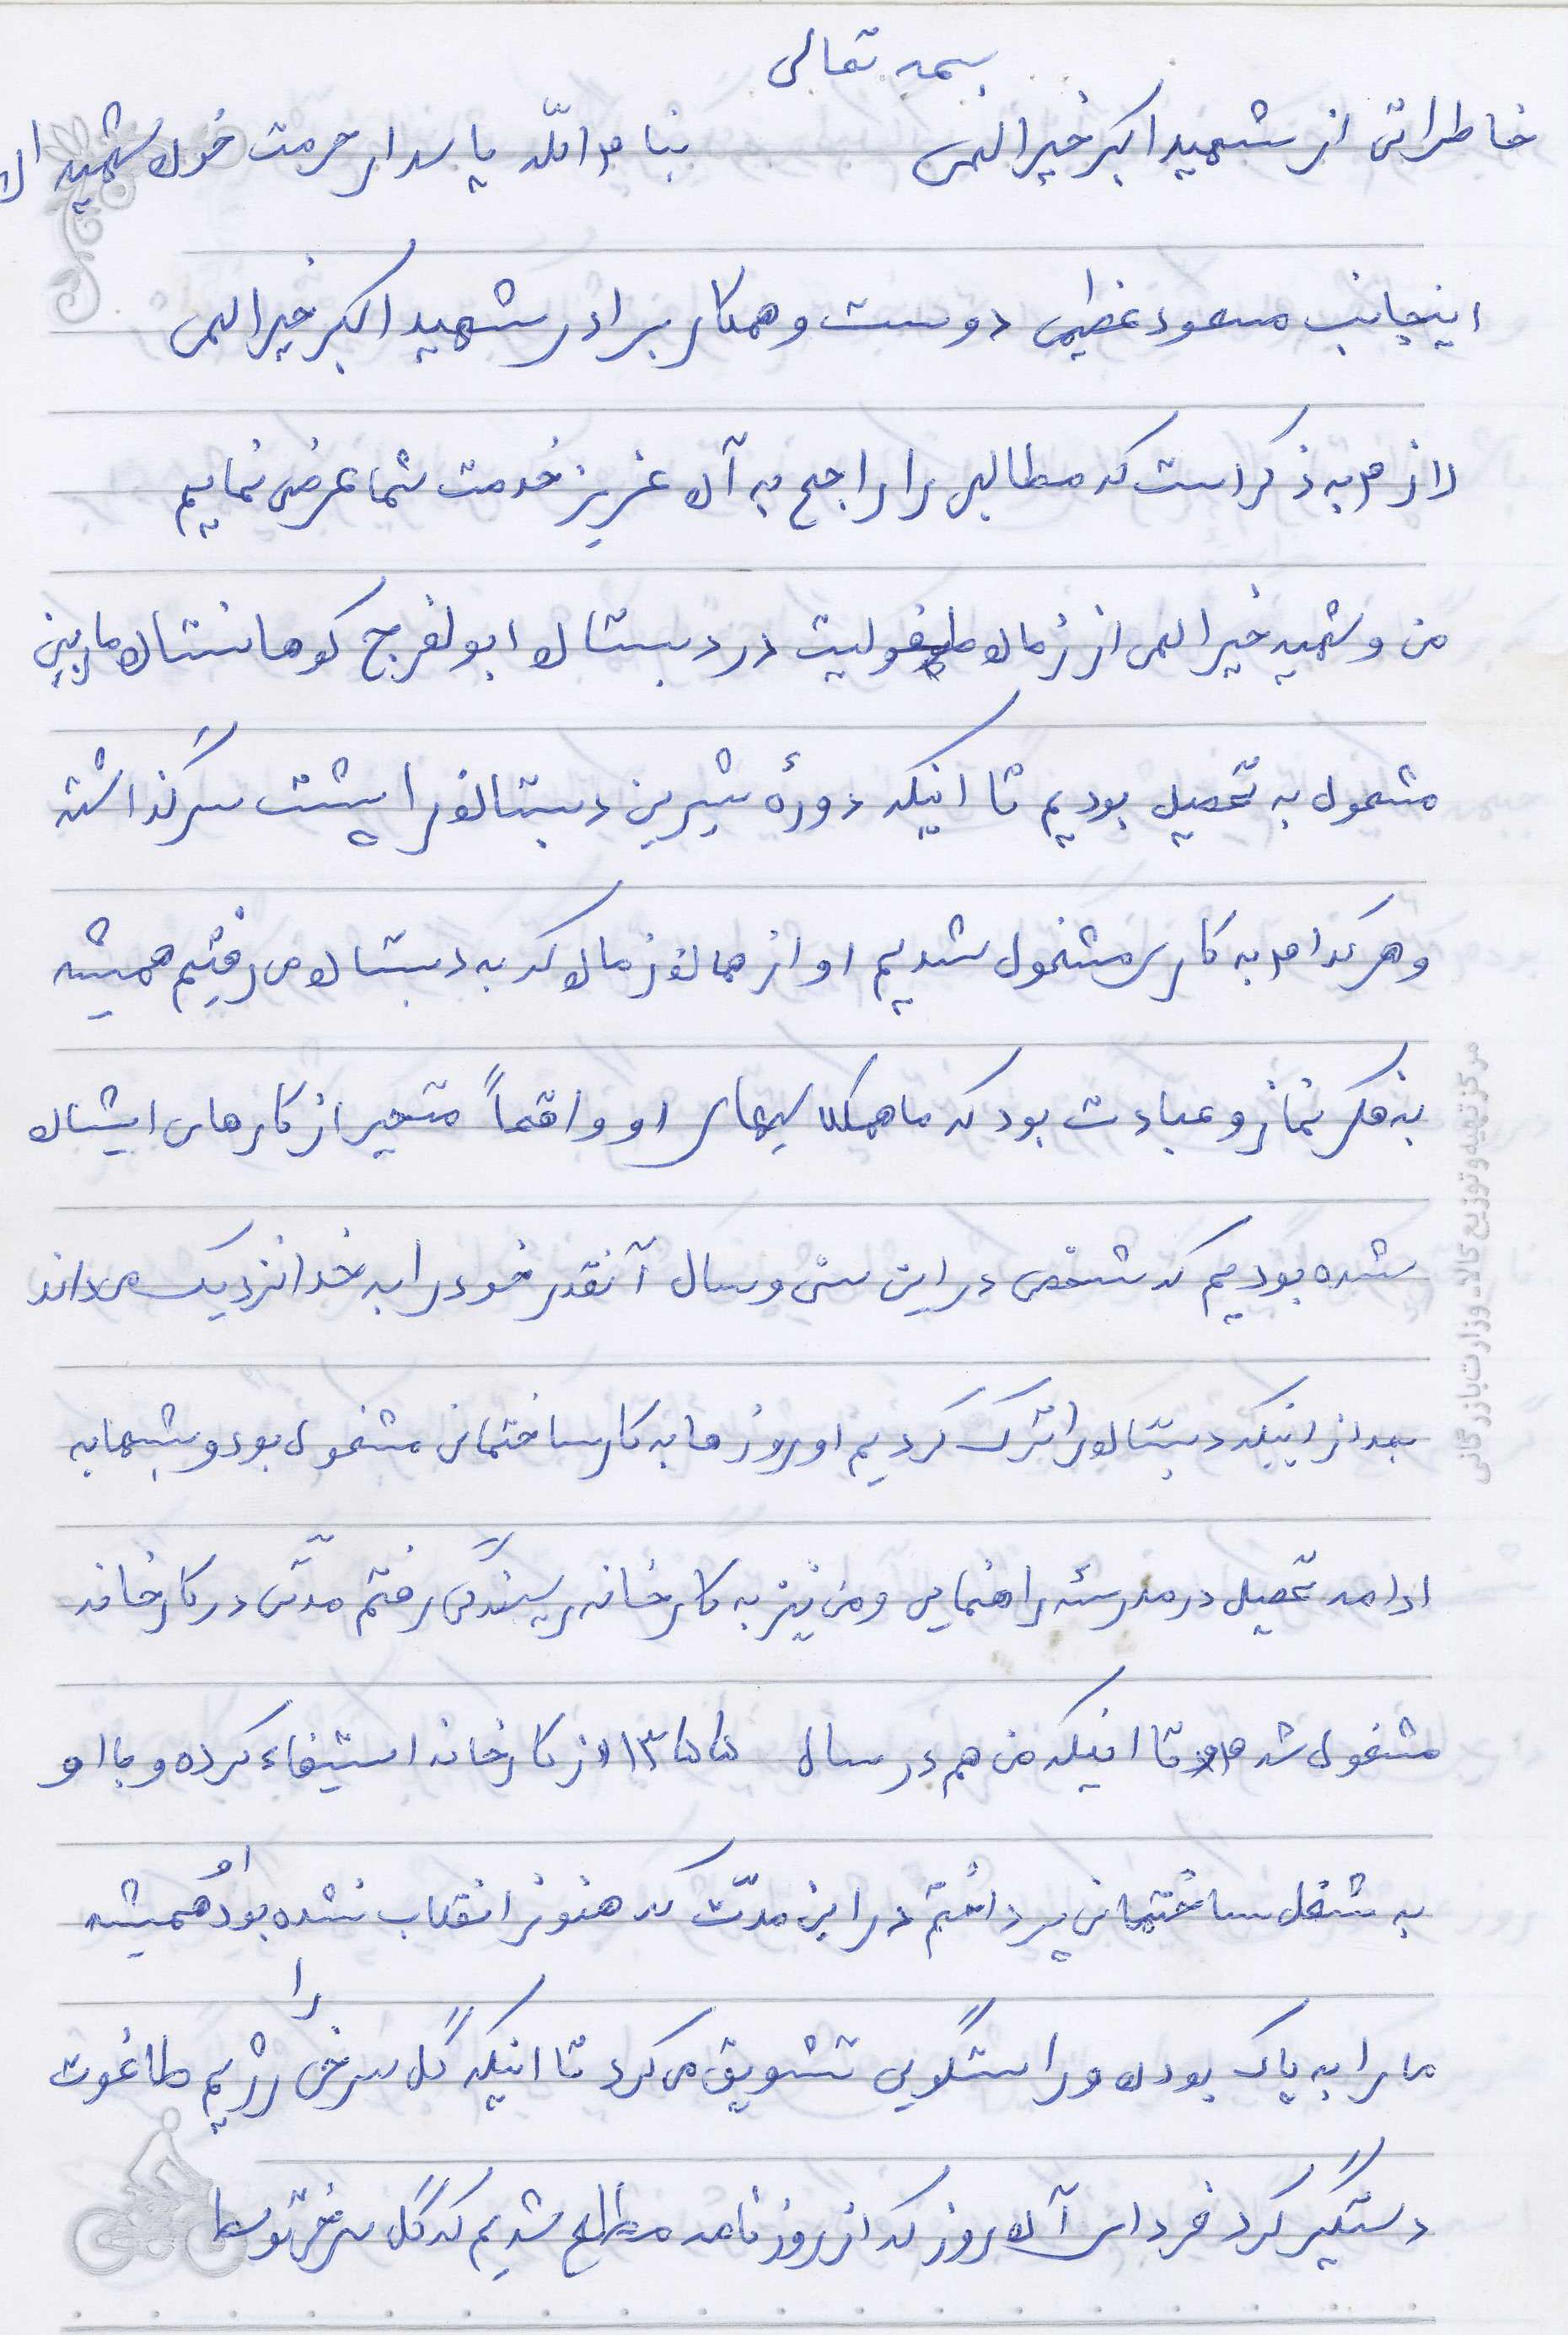 بسمه تعالی
خاطراتی از شهید اکبر خیرالهی بنام الله پاسدار حرمت خون شهیدان
اینجانب مسعود عظیمی دوست و همکار برادر شهید اکبر خیرالهی
لازم به ذکر است که مطالبی را راجع به آن عزیز خدمت شما عرض نمایم
من و شهید خیرالهی از زمان طفولیت در دبستان ابولفرج کوهانستان ماربین
مشغول به تحصیل بودیم تا اینکه دورهٔ شیرین دبستان را پشت سر گذاشته
و هر کدام به کاری مشغول شدیم او از همان زمان که به دبستان می رفتیم همیشه
به فکر نماز و عبادت بود که ما همکلاسیهای او واقعاً متحیر از کارهای ایشان
شده بودیم که شخصی در این سن و سال آنقدر خود را به خدا نزدیک می داند
بعد از اینکه دبستان را ترک کردیم او روزها به کار ساختمانی مشغول بود و شبها به
ادامه تحصیل در مدرسهٔ راهنمایی و من نیز به کارخانه ریسندگی رفتم مدّتی در کارخانه
مشغول شدم و تا اینکه من هم در سال ۱۳۵۵ از کارخانه استیفاء کرده و با او
به شغل ساختمانی پرداختم در این مدّت که هنوز انقلاب نشده بود او همیشه
ما را به پاک بودن و راستگویی تشویق می کرد تا اینکه گل سرخی را رژیم طاغوت
دستگیر کرد فردای آن روز که از روزنامه مطلع شدیم که گل سرخی توسط
مرکز تهیه و توزیع کالا - وزارت بازرگانی